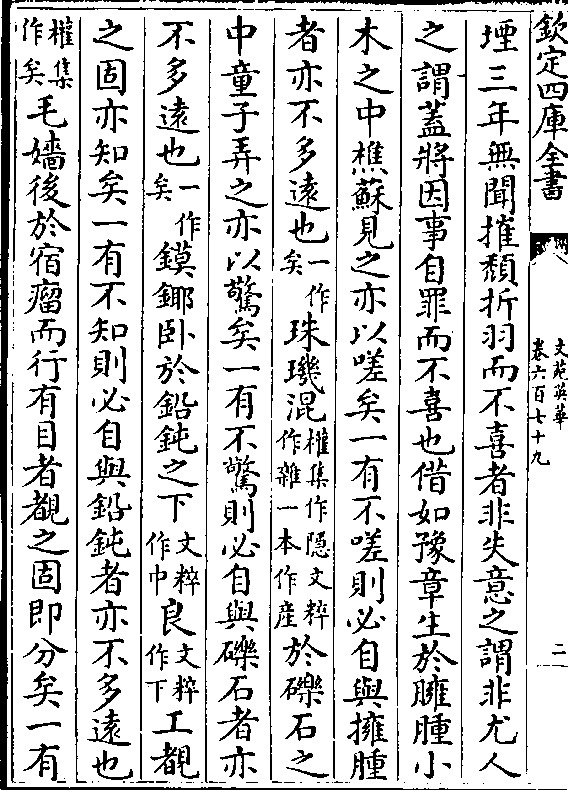 欽定四庫全書
文苑英華
卷六百七十九
二
堙三年無聞摧頽折羽而不喜者非失意之謂非尤人
之謂蓋將因事自罪而不喜也借如豫章生於臃腫小
木之中樵蘇見之亦以嗟矣一有不嗟則必自與擁腫
者亦不多遠也一作矣珠璣混權集作隠文粹作雜一本作産於礫石之
中童子弄之亦以驚矣一有不驚則必自與礫石者亦
不多遠也一作矣鏌鎁卧於鉛鈍之下文粹作中良文粹作下工覩
之固亦知矣一有不知則必自與鉛鈍者亦不多遠也
權集作矣毛嬙後於宿瘤而行有目者覩之固即分矣一有